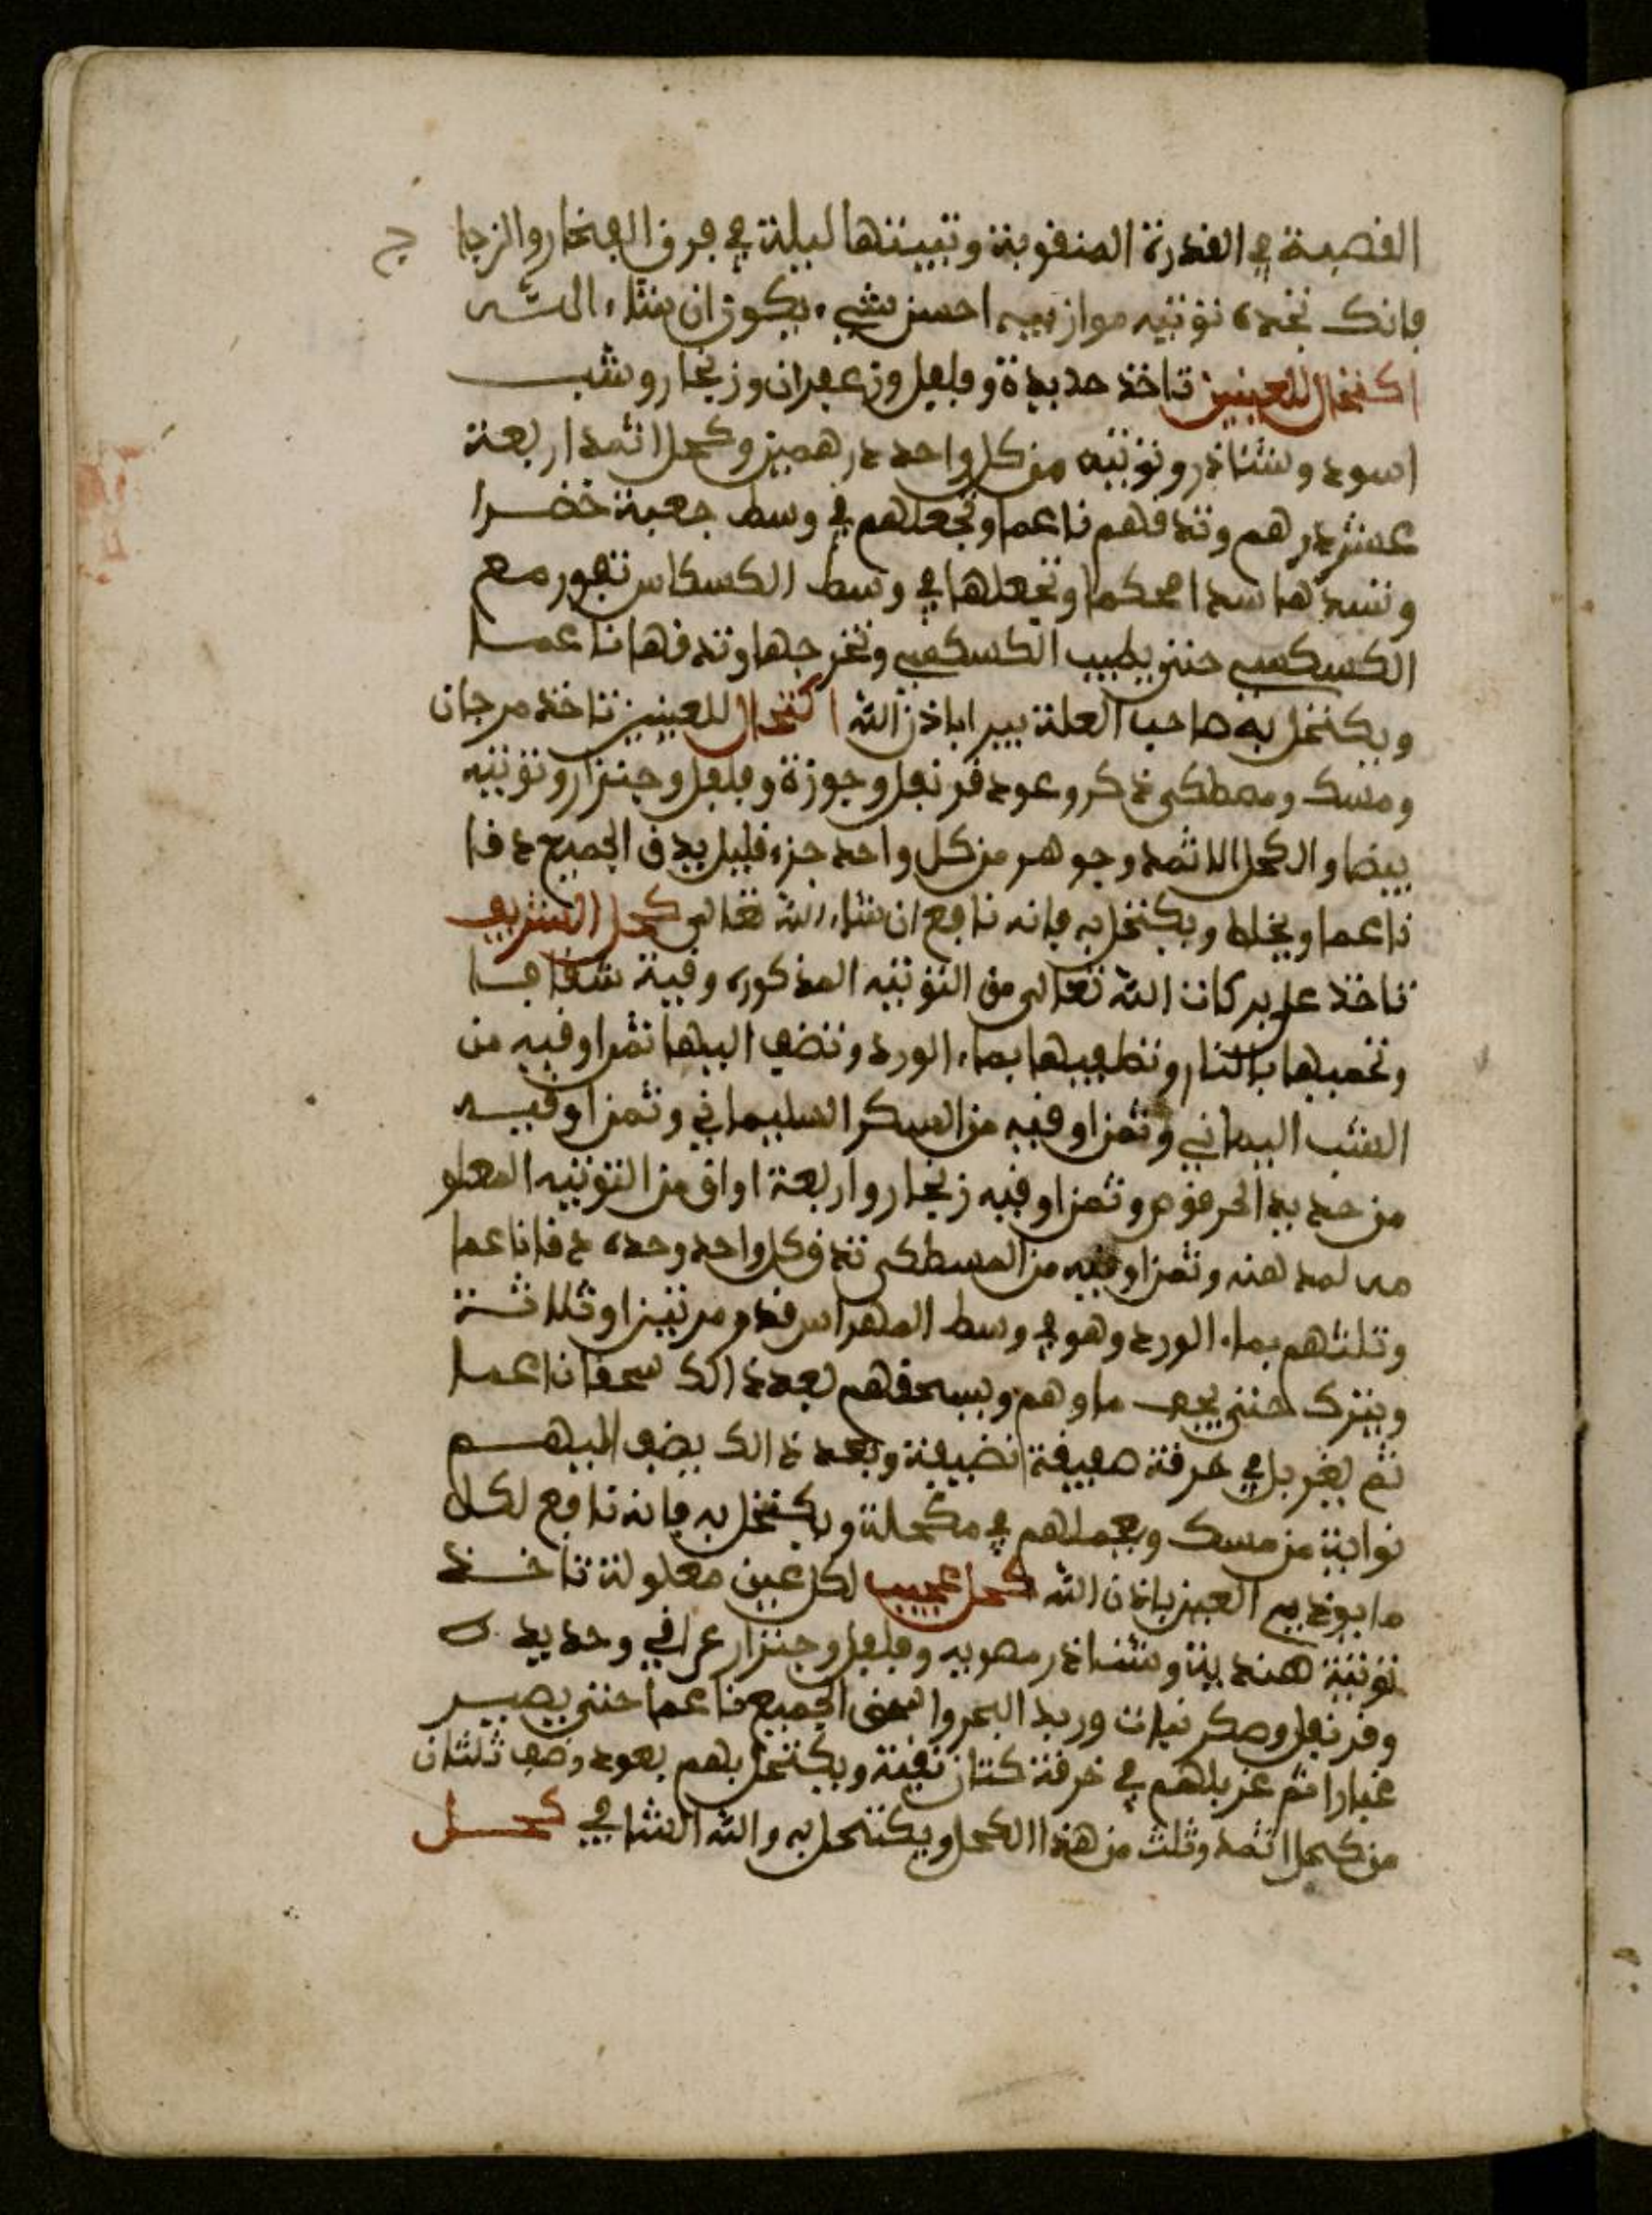 القصبة في القدرة المنقوبة وتبيتها ليلة في فرن الفخار والزجاج
فانك تجده توتيه موازيه احسن شيء يكون ان شاء الله
اكتحال للعينين تاخذ حديدة وفلفل وزعفران وزنجار وشب
اسود وشناذر وتوتيه من كل واحد درهمين وكحل اثمد اربعة
عشر درهم وتدقهم ناعما وتجعلهم في وسط جعبة خضرا
وتسدها سدا محكما وتجعلها في وسط الكسكاس تفور مع
الكسكسي حتى يطيب الكسكسي وتخرجها وتدقها ناعما
ويكتحل به صاحب العلة يبرا باذن الله اكتحال للعينين تاخذ مرجان
ومسك ومصطكى ذكر وعود قرنفل وجوزة وفلفل وجنزار وتوتيه
بيضا والكحل الاثمد وجوهر من كل واحد جزء قليل يدق الجميع دقا
ناعما ويخلط ويكتحل به فانه نافع ان شاء الله تعالى كحل الشريف
تاخذ على بركات الله تعالى من التوتيه المذكوره وقية شفافا
وتحميها بالنار وتطفيها بماء الورد وتضف اليها ثمن اوقيه من
الشب اليماني وثمن اوقيه من السكر السليماني وثمن اوقيه
من حديد الحرقوص وثمن اوقيه زنجار واربعة اواق من التوتيه المعلو
مه لمدهنه وثمن اوقيه من المسطكى تدق كل واحد وحده دقا ناعما
وتلتهم بماء الورد وهو في وسط المهراس قدر مرتين او ثلاثة
ويترك حتى يجف ماوهم ويسحقهم بعد ذالك سحقا ناعما
ثم يغربل في خرقة صفيقة نضيفة وبعد ذالك يضف اليهم
نواية من مسك ويعملهم في مكحلة ويكتحل به فانه نافع لكل
ما يوذي العين باذن الله كحل عجيب لكل عين معلولة تاخذ
توتية هندية وشناذر مصريه وفلفل وجنزار عراقي وحديده
وقرنفل وسكر نبات وزبد البحر واسحق الجميع ناعما حتى يصير
غبارا ثم غربلهم في خرقة كتان نقية ويكتحل بهم بعود وصف ثلثان
من كحل اثمد وثلث من هذا الكحل ويكتحل به والله الشافي كحل